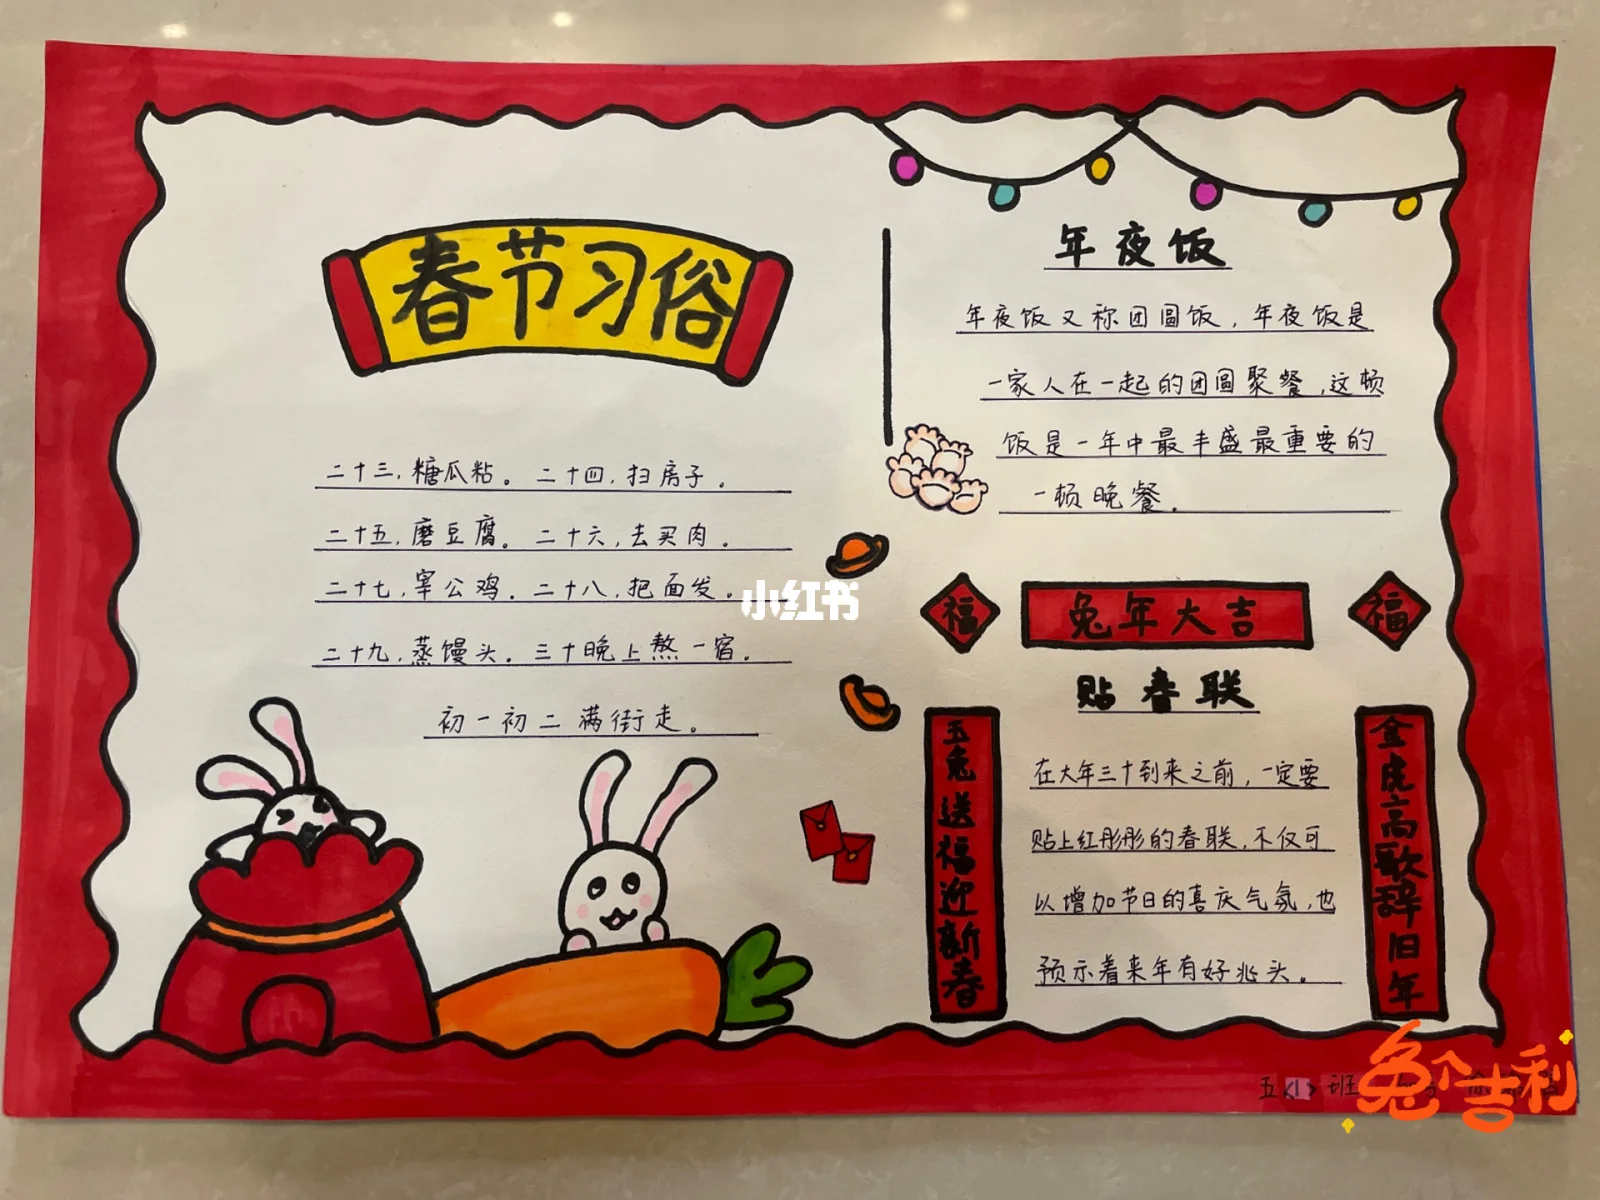 春节习俗
二十三,糖瓜粘。二十四,扫房子。
二十五,磨豆腐。二十六,去买肉。
二十七,宰公鸡。二十八,把面发。
二十九,蒸馒头。三十晚上熬一宿。
初一初二满街走。
年夜饭
年夜饭又称团圆饭,年夜饭是
一家人在一起的团圆聚餐,这顿
饭是一年中最丰盛最重要的
一顿晚餐.
小红书
福
兔年大吉
福
贴春联
玉兔送福迎新春
在大年三十到来之前,一定要
贴上红彤彤的春联,不仅可
以增加节日的喜庆气氛,也
预示着来年有好兆头。
金虎高歌辞旧年
五<1>班
兔个吉利